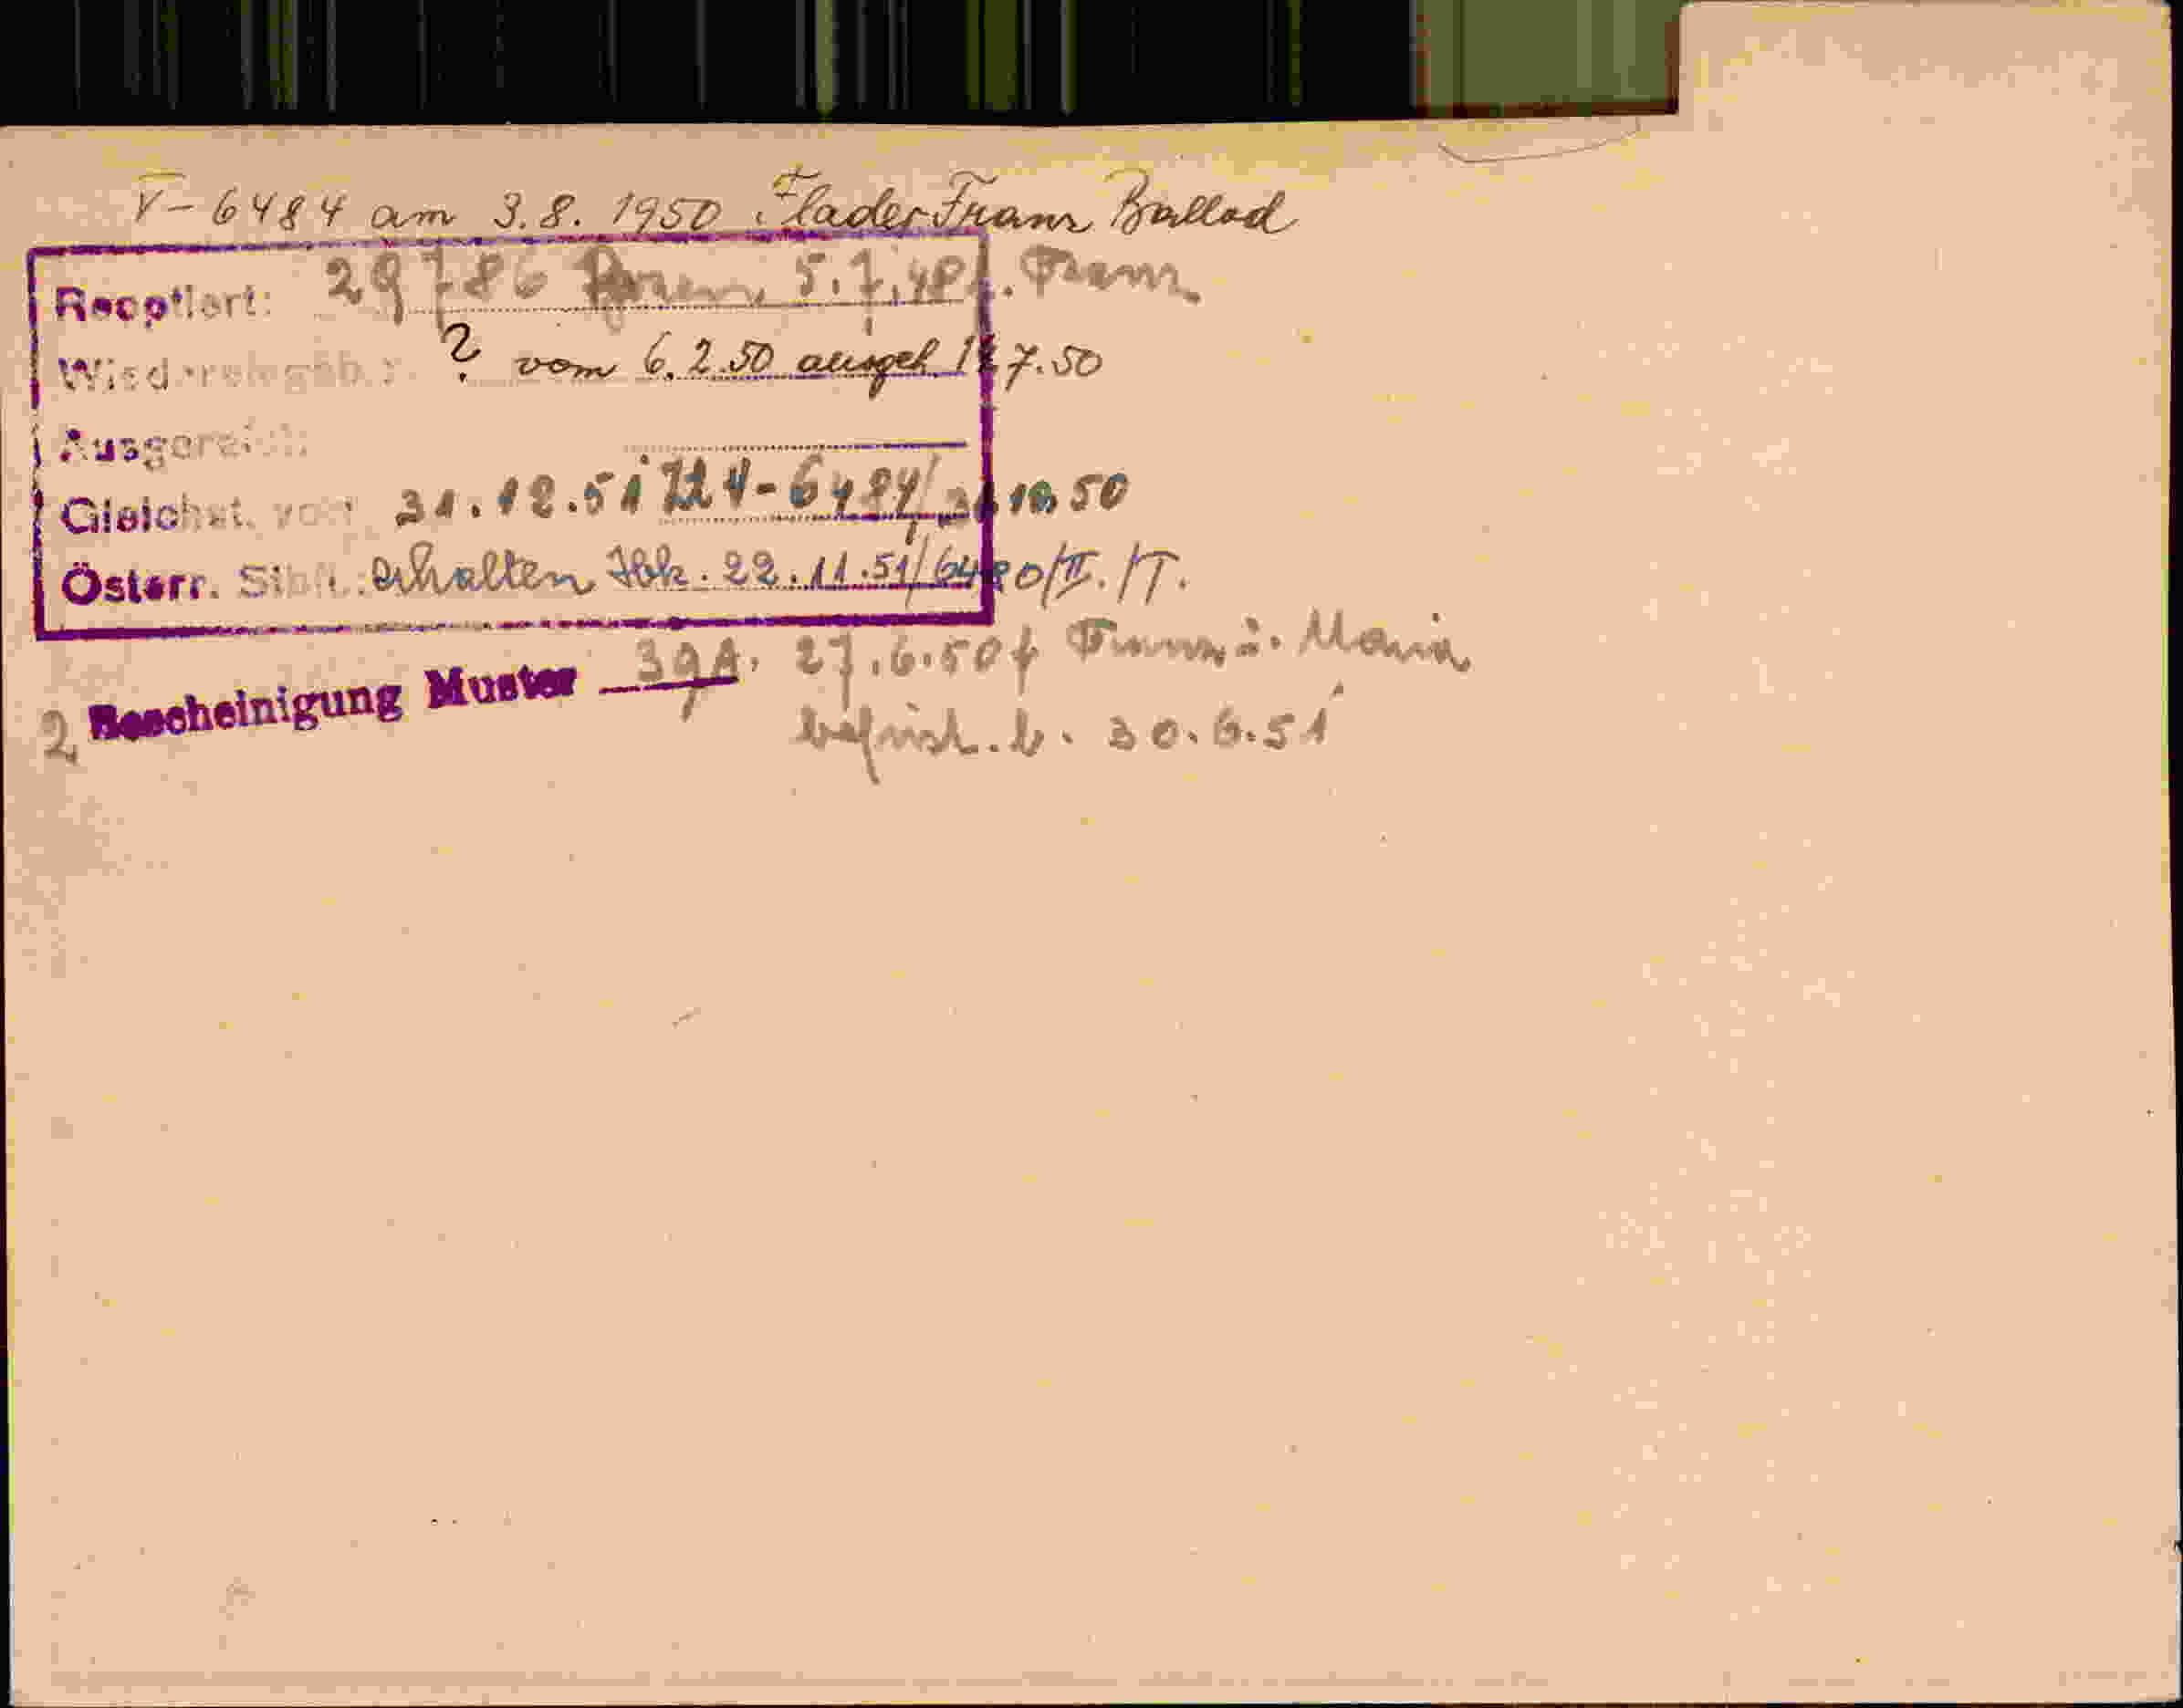 V-6484 am 3.8. 1950 Flader Franz Ballod
Reoptiert: 29786 5.7.48 f. Franz
Wiedereingeb.: ? vom 6.2.50 ausgeh. 7.50
Ausgereist:
Gleichst. vom 31.12.51 V-6484/ 50
Österr. Stbft.: erhalten Ibk. 22.11.51/6480/II./T.
2 Bescheinigung Muster 39A. 27.6.50 f Franz u. Maria
befrist. b. 30.6.51